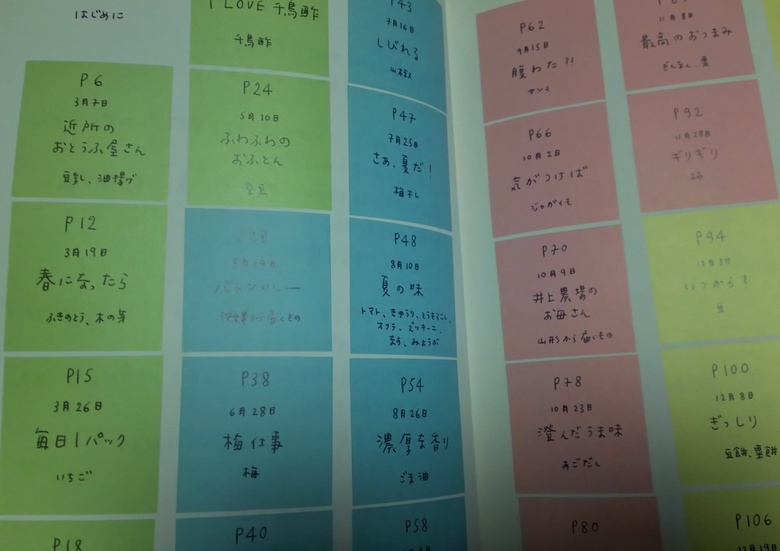 はじめに
P6
3月7日
近所の
おとうふ屋さん
豆乳、油揚げ
P12
3月19日
春になったら
ふきのとう、木の芽
P15
3月26日
毎日1パック
いちご
P18
I LOVE 千鳥酢
千鳥酢
P24
5月10日
ふわふわの
おふとん
空豆
バトンリレー
から届くもの
P38
6月28日
梅仕事
梅
P40
P43
7月16日
しびれる
P47
7月25日
さあ、夏だ!
梅干し
P48
8月10日
夏の味
トマト、きゅうり、とうもろこし、
オクラ、ズッキーニ、
なす、みょうが
P54
8月26日
濃厚な香り
ごま油
P58
P62
9月15日
腹わた?!
サンマ
P66
10月2日
気がつけば
ジャガイモ
P70
10月9日
井上農場の
お母さん
山形から届くもの
P78
10月23日
澄んだうま味
あごだし
P80
11月8日
最高のおつまみ
ぎんなん、栗
P92
11月28日
ギリギリ
P94
いつから?
P100
12月8日
ぎっしり
豆餅、粟餅
P106
12月19日